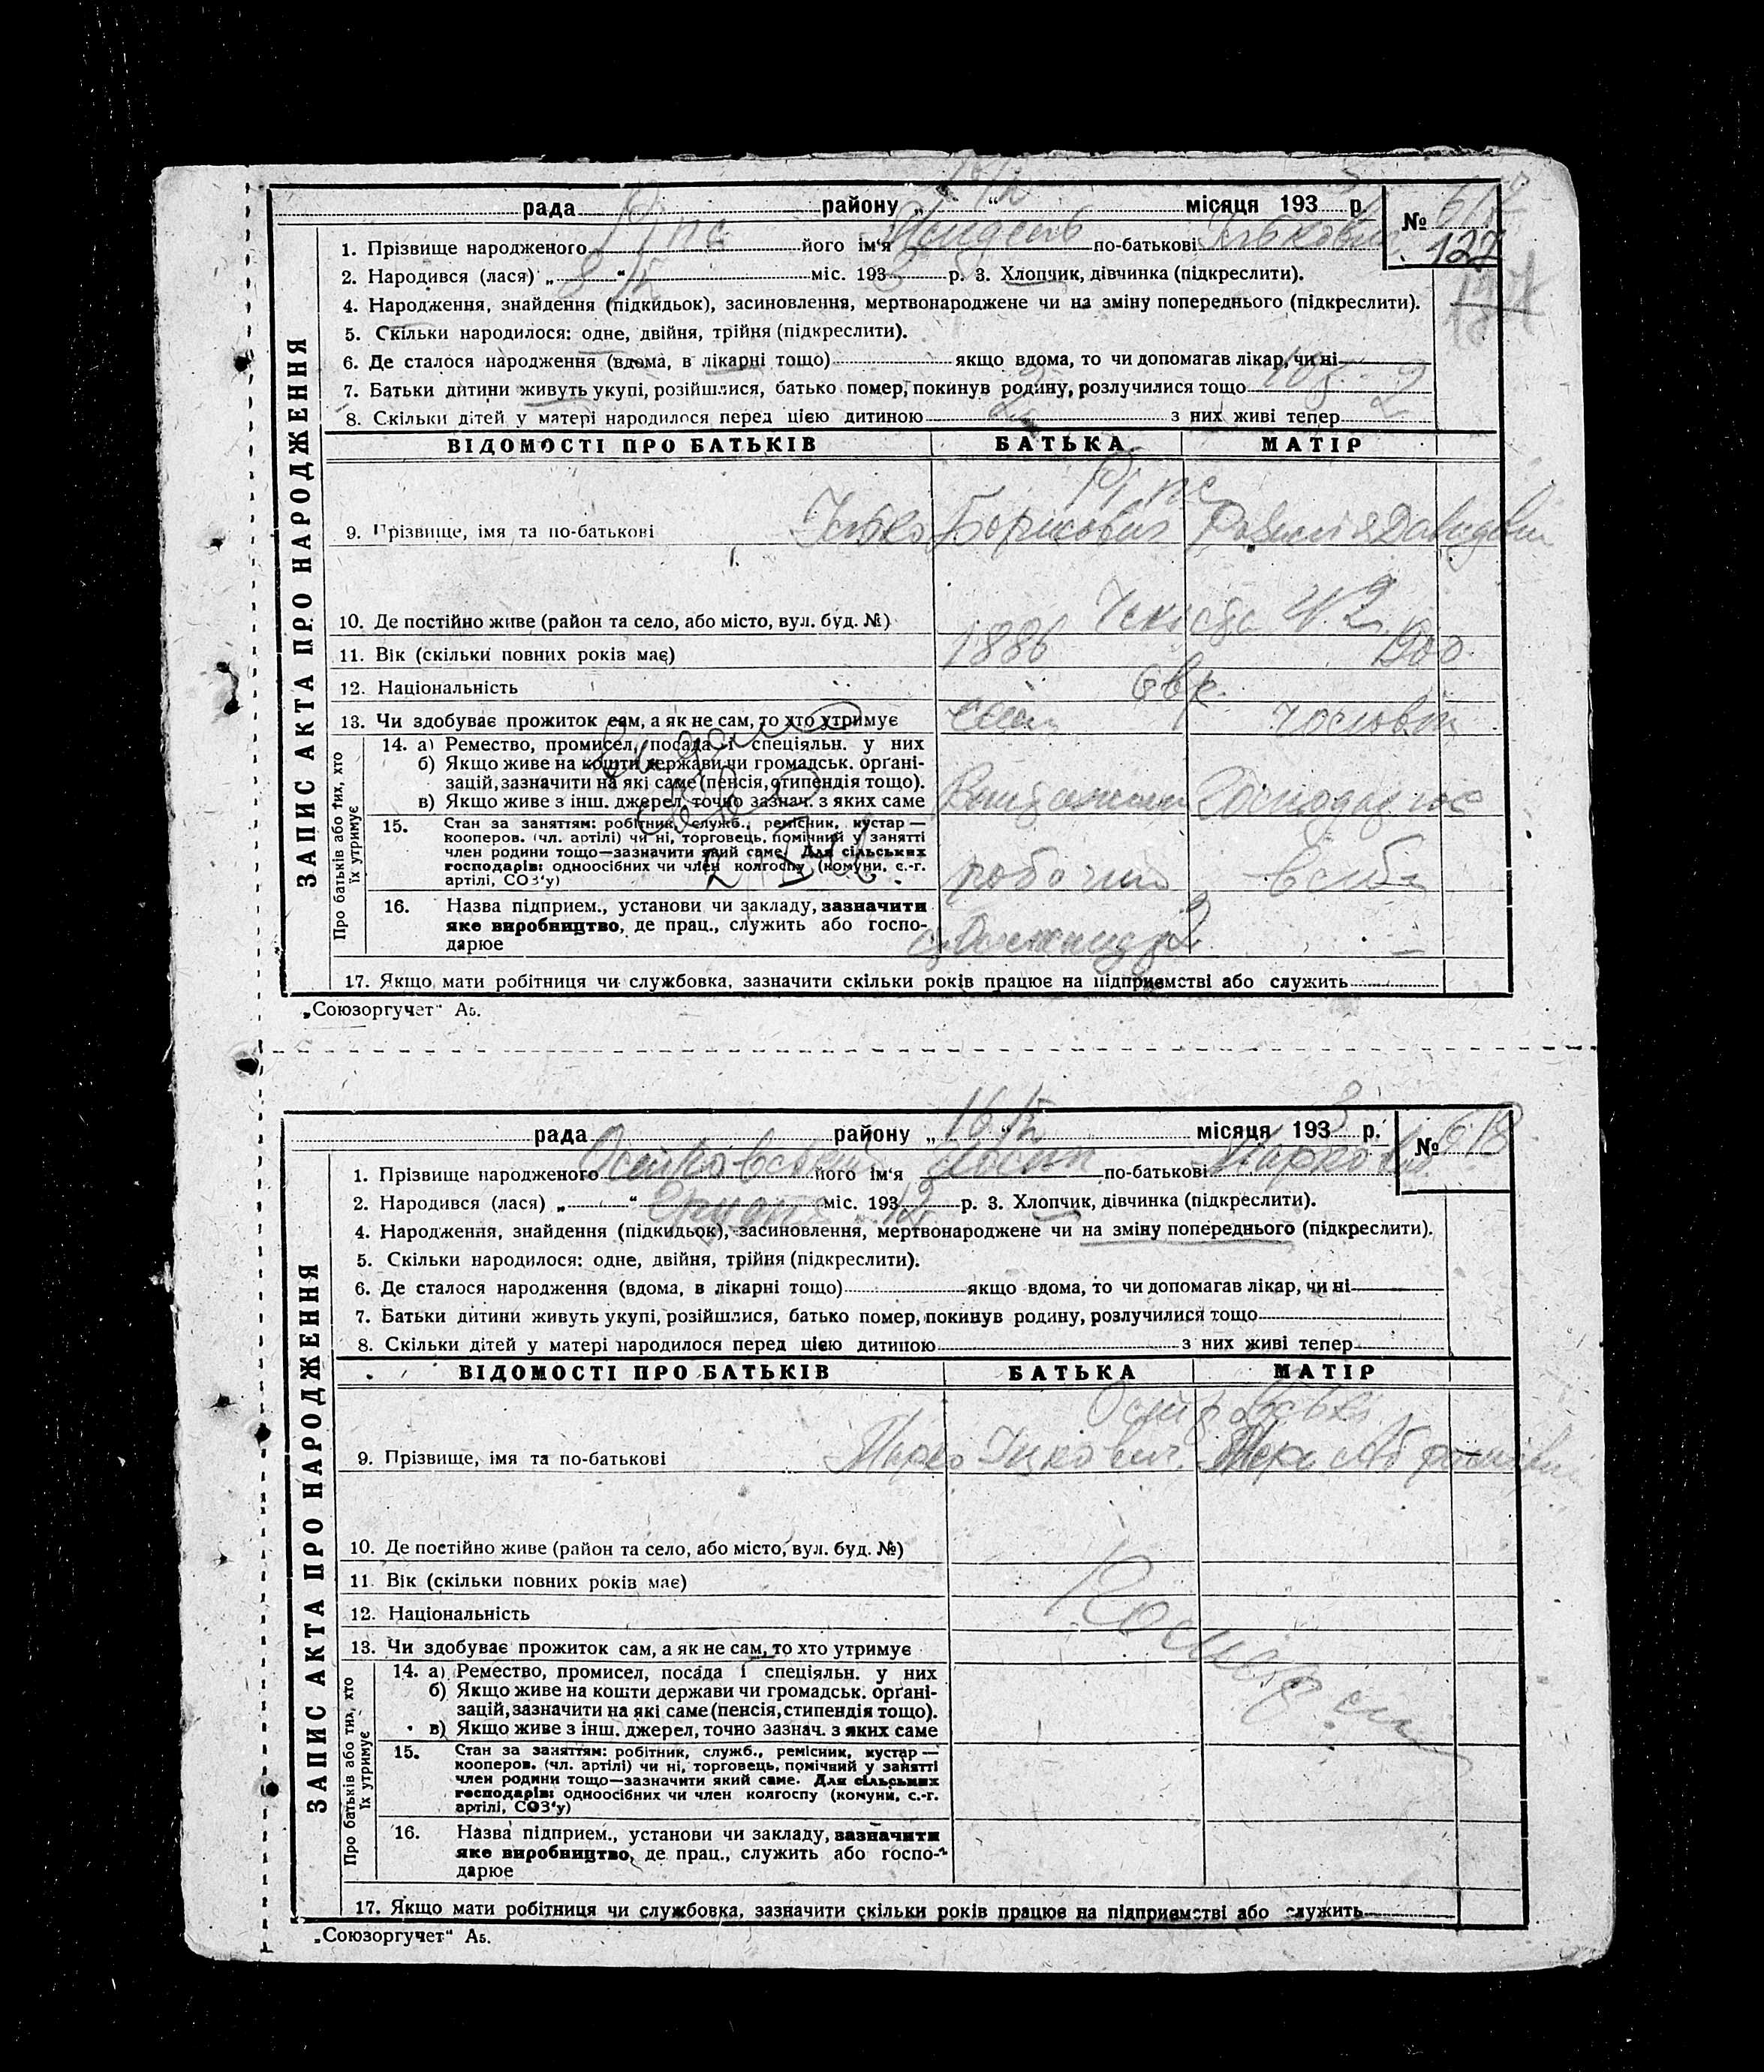 рада районуˮ 16/ІІ “ місяця 1933 р. № 617
1. Прізвище народженого його ім‘я по-батькові 127
2. Народився (лася) „ 8/ІІ “ міс. 1933 р. 3. Хлопчик, дівчинка (підкреслити).
4. Народження, знайдення (підкидьок), засиновлення, мертвонароджене чи на зміну попереднього (підкреслити).
5. Скільки народилося: одне, двійня, трійня (підкреслити).
6. Де сталося народження (вдома, в лікарні тощо) якщо вдома, то чи допомагав лікар, чи ні
7. Батьки дитини живуть укупі, розійшлися, батько помер, покинув родину, розлучилися тощо
8. Скільки дітей у матері народилося перед цією дитиною 2 з них живі тепер 2
ЗАПИС АКТА ПРО НАРОДЖЕННЯ
ВІДОМОСТІ ПРО БАТЬКІВ БАТЬКА МАТІР
9. Прізвище, імя та по-батькові Борисович
10. Де постійно живе (район та село, або місто, вул. буд. №)
11. Вік (скільки повних років має) 1886 1900
12. Національність Євр.
13. Чи здобуває прожиток сам, а як не сам, то хто утримує сам чоловік
Про батьків або тих, хто їх утримує
14. а) Ремество, промисел, посада і спеціяльн. у них
б) Якщо живе на кошти держави чи громадськ. орґані-
зацій, зазначити на які саме (пенсія, стипендія тощо).
в) Якщо живе з інш. джерел, точно зазнач. з яких саме
15. Стан за заняттям: робітник, служб., ремісник, кустар —
кооперов. (чл. артілі) чи ні, торговець, помічний у занятті
член родини тощо—зазначити який саме. Для сільських
господарів: одноосібних чи член колгоспу (комуни, с.-г.
артілі, СОЗ‘у)
16. Назва підприєм., установи чи закладу, зазначити
яке виробництво, де прац., служить або госпо-
дарює
17. Якщо мати робітниця чи службовка, зазначити скільки років працює на підприємстві або служить
„Союзоргучет“ А5.
рада району „ 16/ІІ “ місяця 1933 р. № 618
1. Прізвище народженого його ім‘я по-батькові Маркович
2. Народився (лася) „ “ міс. 193 р. 3. Хлопчик, дівчинка (підкреслити).
4. Народження, знайдення (підкидьок), засиновлення, мертвонароджене чи на зміну попереднього (підкреслити).
5. Скільки народилося: одне, двійня, трійня (підкреслити).
6. Де сталося народження (вдома, в лікарні тощо) якщо вдома, то чи допомагав лікар, чи ні
7. Батьки дитини живуть укупі, розійшлися, батько помер, покинув родину, розлучилися тощо
8. Скільки дітей у матері народилося перед цією дитиною з них живі тепер
ЗАПИС АКТА ПРО НАРОДЖЕННЯ
ВІДОМОСТІ ПРО БАТЬКІВ БАТЬКА МАТІР
9. Прізвище, імя та по-батькові Марко Іцкович
10. Де постійно живе (район та село, або місто, вул. буд. №)
11. Вік (скільки повних років має)
12. Національність
13. Чи здобуває прожиток сам, а як не сам, то хто утримує
Про батьків або тих, хто їх утримує
14. а) Ремество, промисел, посада і спеціяльн. у них
б) Якщо живе на кошти держави чи громадськ. орґані-
зацій, зазначити на які саме (пенсія, стипендія тощо).
в) Якщо живе з інш. джерел, точно зазнач. з яких саме
15. Стан за заняттям: робітник, служб., ремісник, кустар —
кооперов. (чл. артілі) чи ні, торговець, помічний у занятті
член родини тощо—зазначити який саме. Для сільських
господарів: одноосібних чи член колгоспу (комуни, с.-г.
артілі, СОЗ‘у)
16. Назва підприєм., установи чи закладу, зазначити
яке виробництво, де прац., служить або госпо-
дарює
17. Якщо мати робітниця чи службовка, зазначити скільки років працює на підприємстві або служить
„Союзоргучет“ А5.